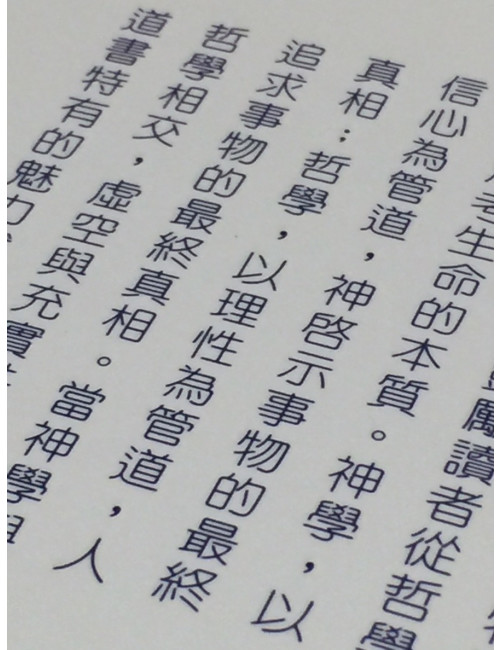 勵讀者從哲學
考生命的本質。神學，以
信心為管道，神啓示事物的最終
真相；哲學，以理性為管道，人
追求事物的最終真相。當神學相
哲學相交，虛空與充實
道書特有的魅力